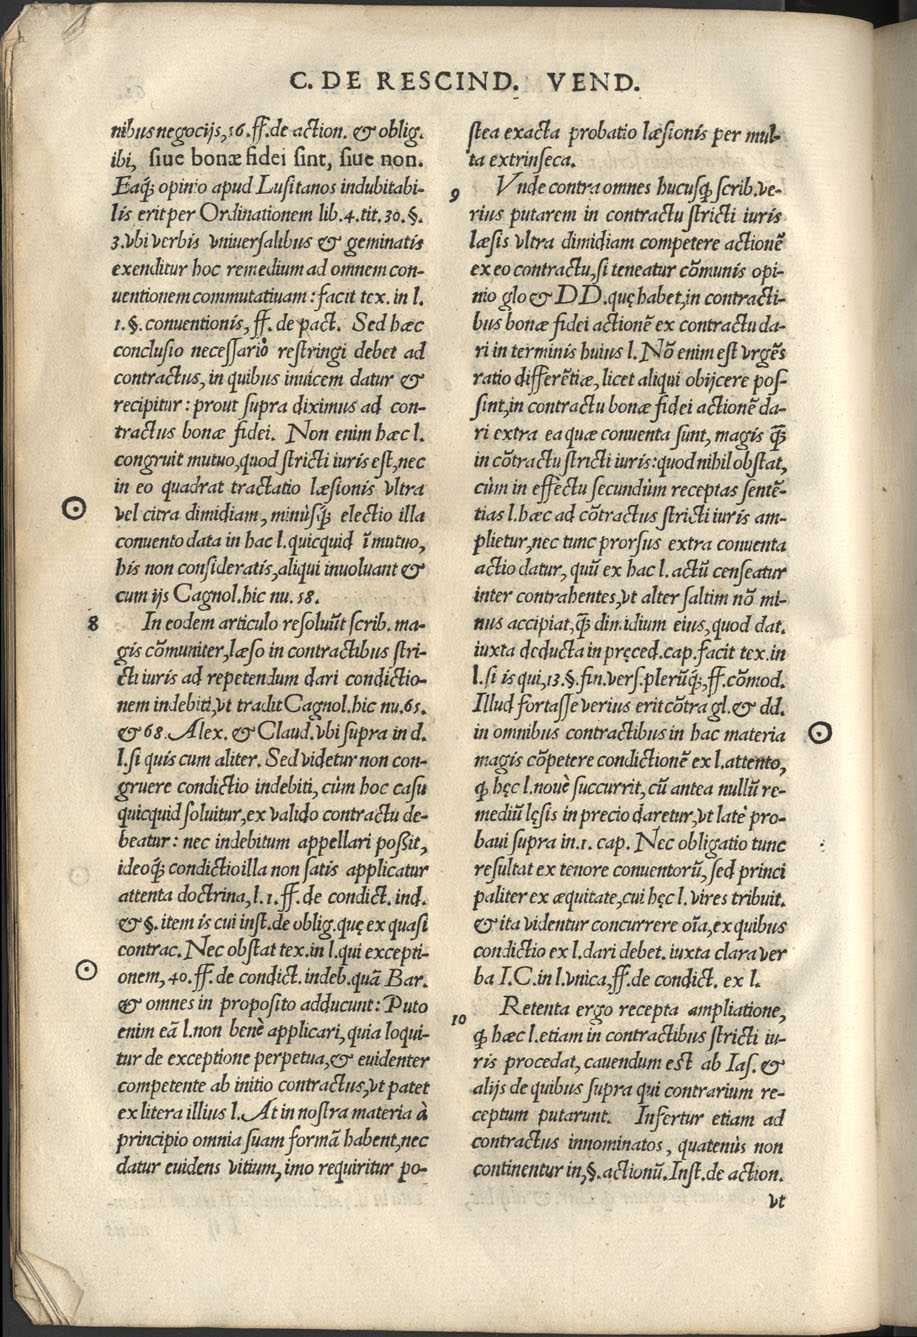 C. DE RESCIND. VEND.
nibus negocijs, 56. ff. de action. & oblig.
ibi, siue bonæ fidei sint, siue non.
Eaq́; opinio apud Lusitanos indubitabi-
lis erit per Ordinationem lib. 4. tit. 30. §.
3. vbi verbis vniuersalibus & geminatis
exenditur hoc remedium ad omnem con-
uentionem commutatiuam: facit tex. in l.
1. §. conuentionis, ff. de pact. Sed hæc
conclusio necessariò restringi debet ad
contractus, in quibus inuicem datur &
recipitur: prout supra diximus ad con-
tractus bonæ fidei. Non enim hæc l.
congruit mutuo, quod stricti iuris est, nec
in eo quadrat tractatio læsionis vltra
vel citra dimidiam, minùsq́; electio illa
conuento data in hac l. quicquid ĩ mutuo,
his non consideratis, aliqui inuoluant &
cum ijs Cagnol. hic nu. 58.
8 In eodem articulo resoluũt scrib. ma-
gis cõmuniter, læso in contractibus stri-
cti iuris ad repetendum dari condictio-
nem indebiti, vt tradit Cagnol. hic nu. 65.
& 68. Alex. & Claud. vbi supra in d.
l. si quis cum aliter. Sed videtur non con-
gruere condictio indebiti, cùm hoc casu
quicquid soluitur, ex valido contractu de-
beatur: nec indebitum appellari possit,
ideoq́; condictio illa non satis applicatur
attenta doctrina, l. 1. ff. de condict. ind.
& §. item is cui inst. de oblig. quę ex quasi
contrac. Nec obstat tex. in l. qui excepti-
onem, 40. ff. de condict. indeb. quã Bar.
& omnes in proposito adducunt: Puto
enim eã l. non benè applicari, quia loqui-
tur de exceptione perpetua, & euidenter
competente ab initio contractus, vt patet
ex litera illius l. At in nostra materia à
principio omnia suam formã habent, nec
datur euidens vitium, imo requiritur po-
stea exacta probatio læsionis per mul-
ta extrinseca.
9 Vnde contra omnes hucusq́; scrib. ve-
rius putarem in contractu stricti iuris
læsis vltra dimidiam competere actionẽ
ex eo contractu, si teneatur cõmunis opi-
nio glo & DD. quę habet, in contracti-
bus bonæ fidei actionẽ ex contractu da-
ri in terminis huius l. Nõ enim est vrgẽs
ratio differẽtiæ, licet aliqui obijcere pos-
sint, in contractu bonæ fidei actionẽ da-
ri extra ea quæ conuenta sunt, magis q̃;
in cõtractu stricti iuris: quod nihil obstat,
cùm in effectu secundùm receptas sentẽ-
tias l. hæc ad cõtractus stricti iuris am-
plietur, nec tunc prorsus extra conuenta
actio datur, quũ ex hac l. actũ censeatur
inter contrahentes, vt alter saltim nõ mi-
nus accipiat, q̃; dimidium eius, quod dat.
iuxta deducta in pręced. cap. facit tex. in
l. si is qui, 13. §. fin. vers. plerũq́;, ff. cõmod.
Illud fortasse verius erit cõtra gl. & dd.
in omnibus contractibus in hac materia
magis cõpetere condictionẽ ex l. attento,
ꝙ hęc l. nouè succurrit, cũ antea nullũ re-
mediũ lęsis in precio daretur, vt latè pro-
baui supra in. 1. cap. Nec obligatio tunc
resultat ex tenore conuentorũ, sed princi
paliter ex æquitate, cui hęc l. vires tribuit.
& ita videntur concurrere oĩa, ex quibus
condictio ex l. dari debet. iuxta clara ver
ba I. C. in l. vnica, ff. de condict. ex l.
10 Retenta ergo recepta ampliatione,
ꝙ hæc l. etiam in contractibus stricti iu-
ris procedat, cauendum est ab Ias. &
alijs de quibus supra qui contrarium re-
ceptum putarunt. Infertur etiam ad
contractus innominatos, quatenùs non
continentur in, §. actionũ. Inst. de action.
vt